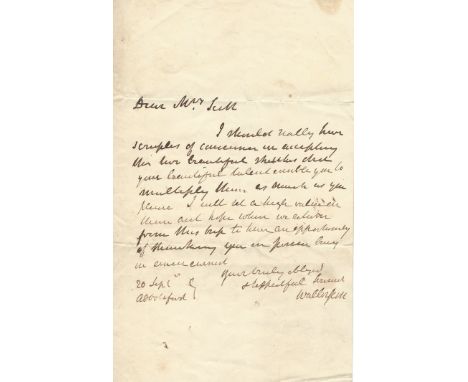 Dear Mrs Scott
I should really have
scruples of conscience in accepting
this two beautiful sketches did
your beautiful talent enable you to
multiply them as much as you
please I will set a high value on
them and hope when we return
from this trip to have an opportunity
of thanking you in person being
in
Your truly obliged
& respectful Servant
Walter Scott
20 Sept
Abbotsford